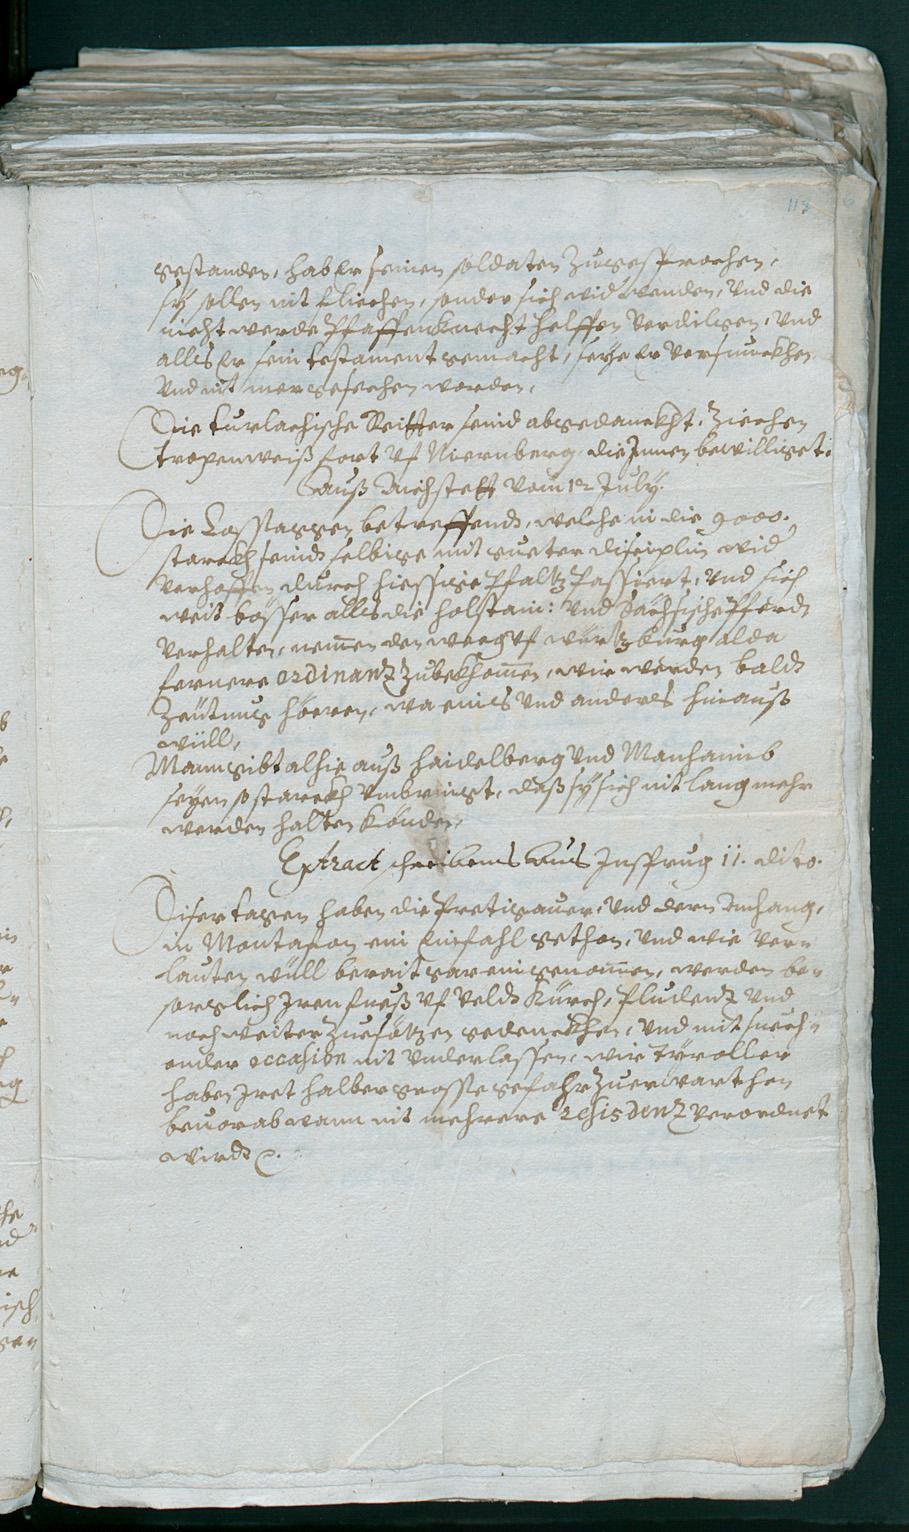 113
gestanden, hab Er seinen soldaten Zugesprochen,
sÿ sollen nit fliechen, sonder sich wid wenden, Vnd die
nicht werde Pfaffenknecht helffen Verdilgen, Vnd
alls Er sein testament gemacht, seÿe Er Versunckhen
Vnd nit mer gesechen worden,
Die turlachische Reitter seind abgedanckht, Ziechen
tropenweiß fort Vf Niernberg, die Innen bewilliget.
Auß Aichstett vom 12 Julÿ.
Die Cossaggen betreffendt, welche in die 9000.
starckh seindt selbige mit gueter disciplin wid
verhoffen durch hiessige Pfaltz Passiert, Vnd sich
weit bösser alls die holstain: Vnd Sächsische Pferdt
Verhalten, nemmen den weeg vf würtzburg alda
fernere ordinantz Zubekhommen, wir werden baldt
Zeütung höeren, wa eins Vnd anders hinauß
wüll,
Mann gibt alhie auß haidelberg Vnd Manhaimb
seyen so starckh Vmbringt, daß sÿ sich nit lang mehr
werden halten könden,
Extract schreibens Auß Insprug 11. dito.
Diser tagen haben die Pretigauer, Vnd deren Anhang,
in Montafon ein Einfahl gethon, Vnd wie ver=
lauten wüll berait gar eingenommen, werden be=
sorglich Iren fueß vf Veldt Kürch, Pludentz Vnd
noch weiter Zuesötzen gedenckhen, Vnd mit suech=
ender occasion nit Vnderlassen, wir Tÿroller
haben Iret halber grosse gefahr Zuerwarthen
beuorab wann nit mehrere resisdentz verordnet
wirdt